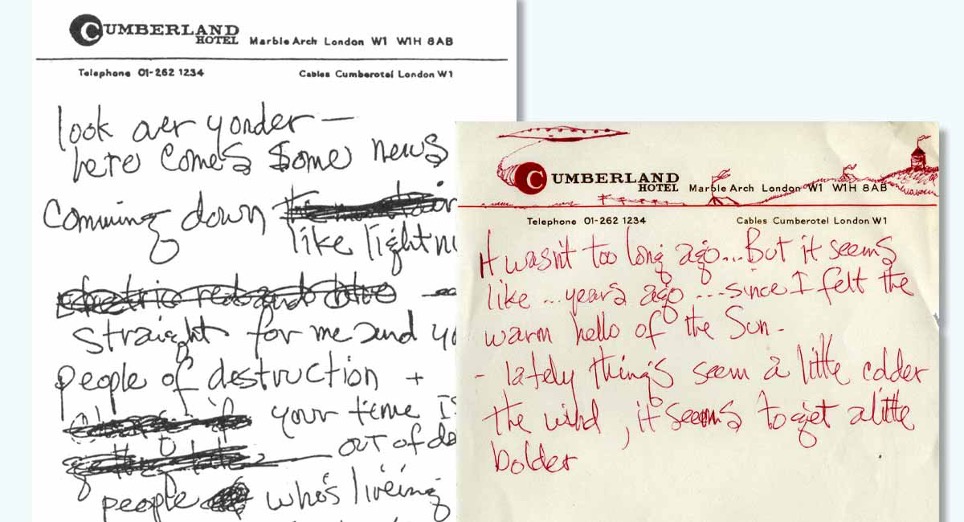 CUMBERLAND HOTEL Marble Arch London W1 W1H 8AB
Telephone 01-262 1234 Cables Cumberotel London W1
look over yonder —
here comes some news
comming down
like lightn
straight for me and yo
people of destruction +
your time is
out of da
people who's liveing
CUMBERLAND HOTEL Marble Arch London W1 W1H 8AB
Telephone 01-262 1234 Cables Cumberotel London W1
It wasn't too long ago...But it seems
like ...years ago ...since I felt the
warm hello of the Sun -
- lately things seem a little colder
the wind, it seems to get a little
bolder